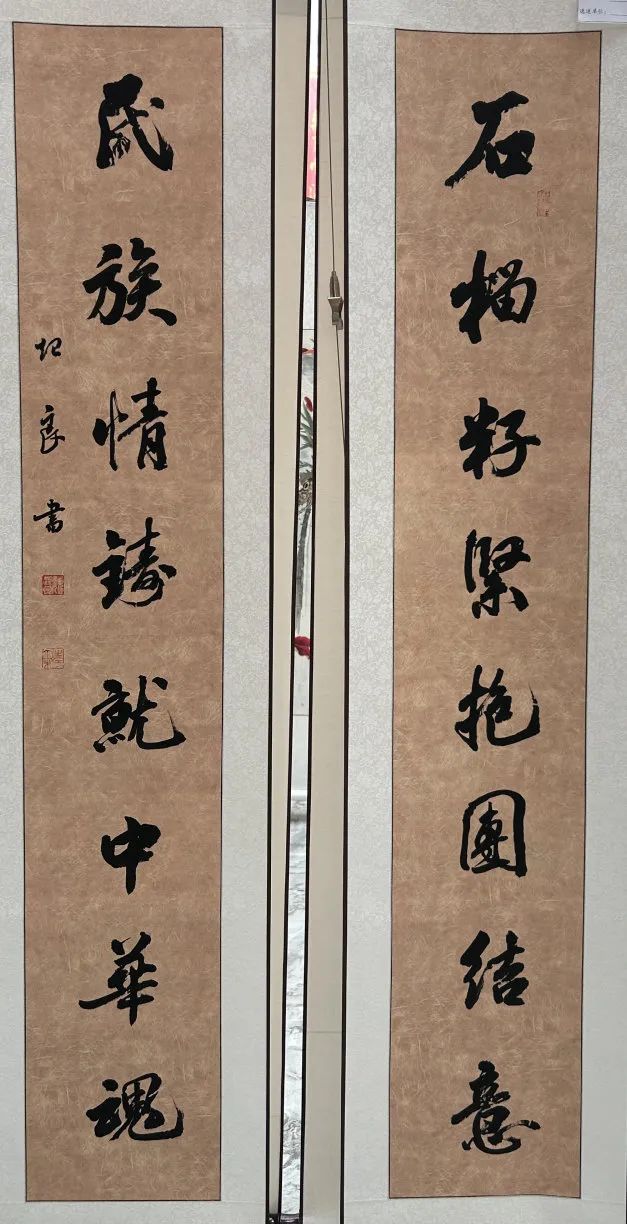 选送单位：
石榴籽緊抱團結意
民族情鑄就中華魂
良書